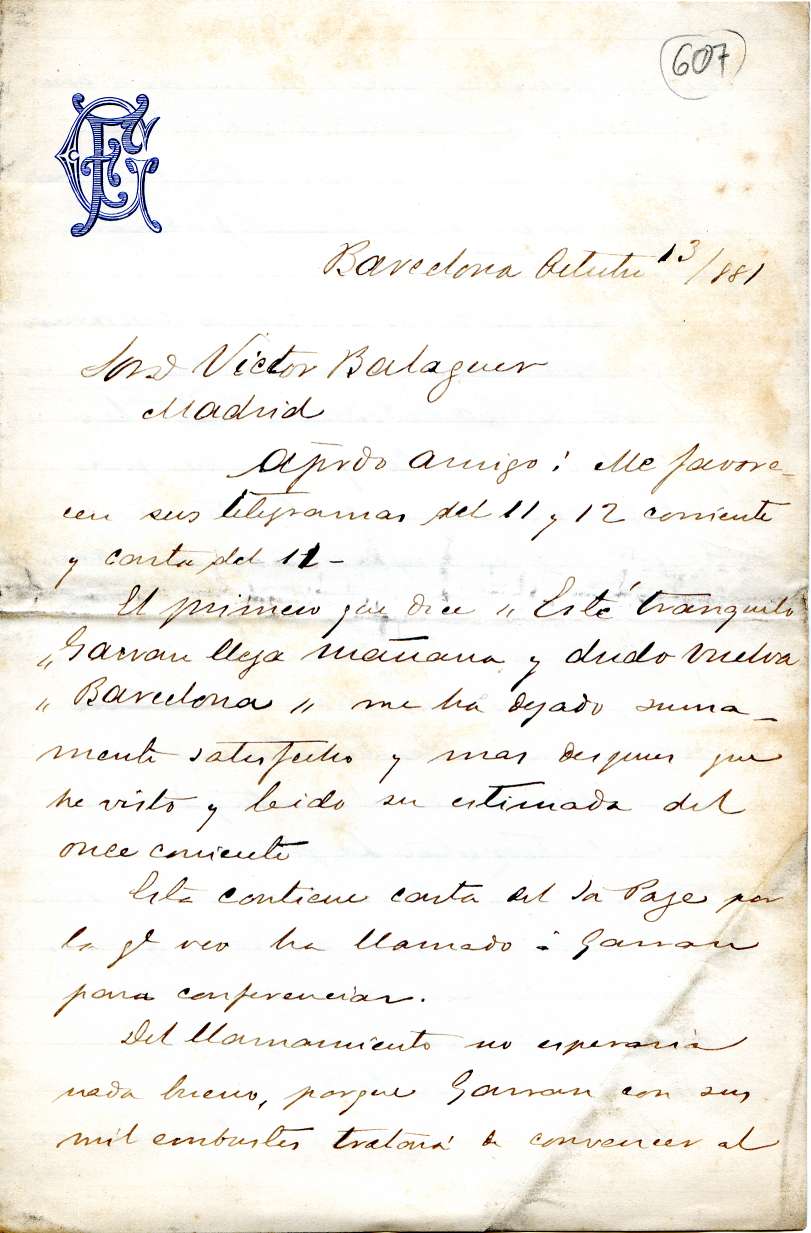 607
Barcelona Octubre 13/881
Sor D Victor Balaguer
Madrid
Aprdo amigo: Me favore-
cen sus telegramas del 11 y 12 corriente
y carta del 11-
El primero que dice „ Esté tranquilo
„ Garran llega mañana y dudo vuelva
„ Barcelona „ me ha dejado suma-
mente satisfecho y mas despues que
he visto y leido su estimada del
once corriente
Esta contiene carta del Sr Page por
la qe veo ha llamado á Garran
para conferenciar.
Del llamamiento no esperaria
nada bueno, porque Garran con sus
mil embustes tratará de convencer al